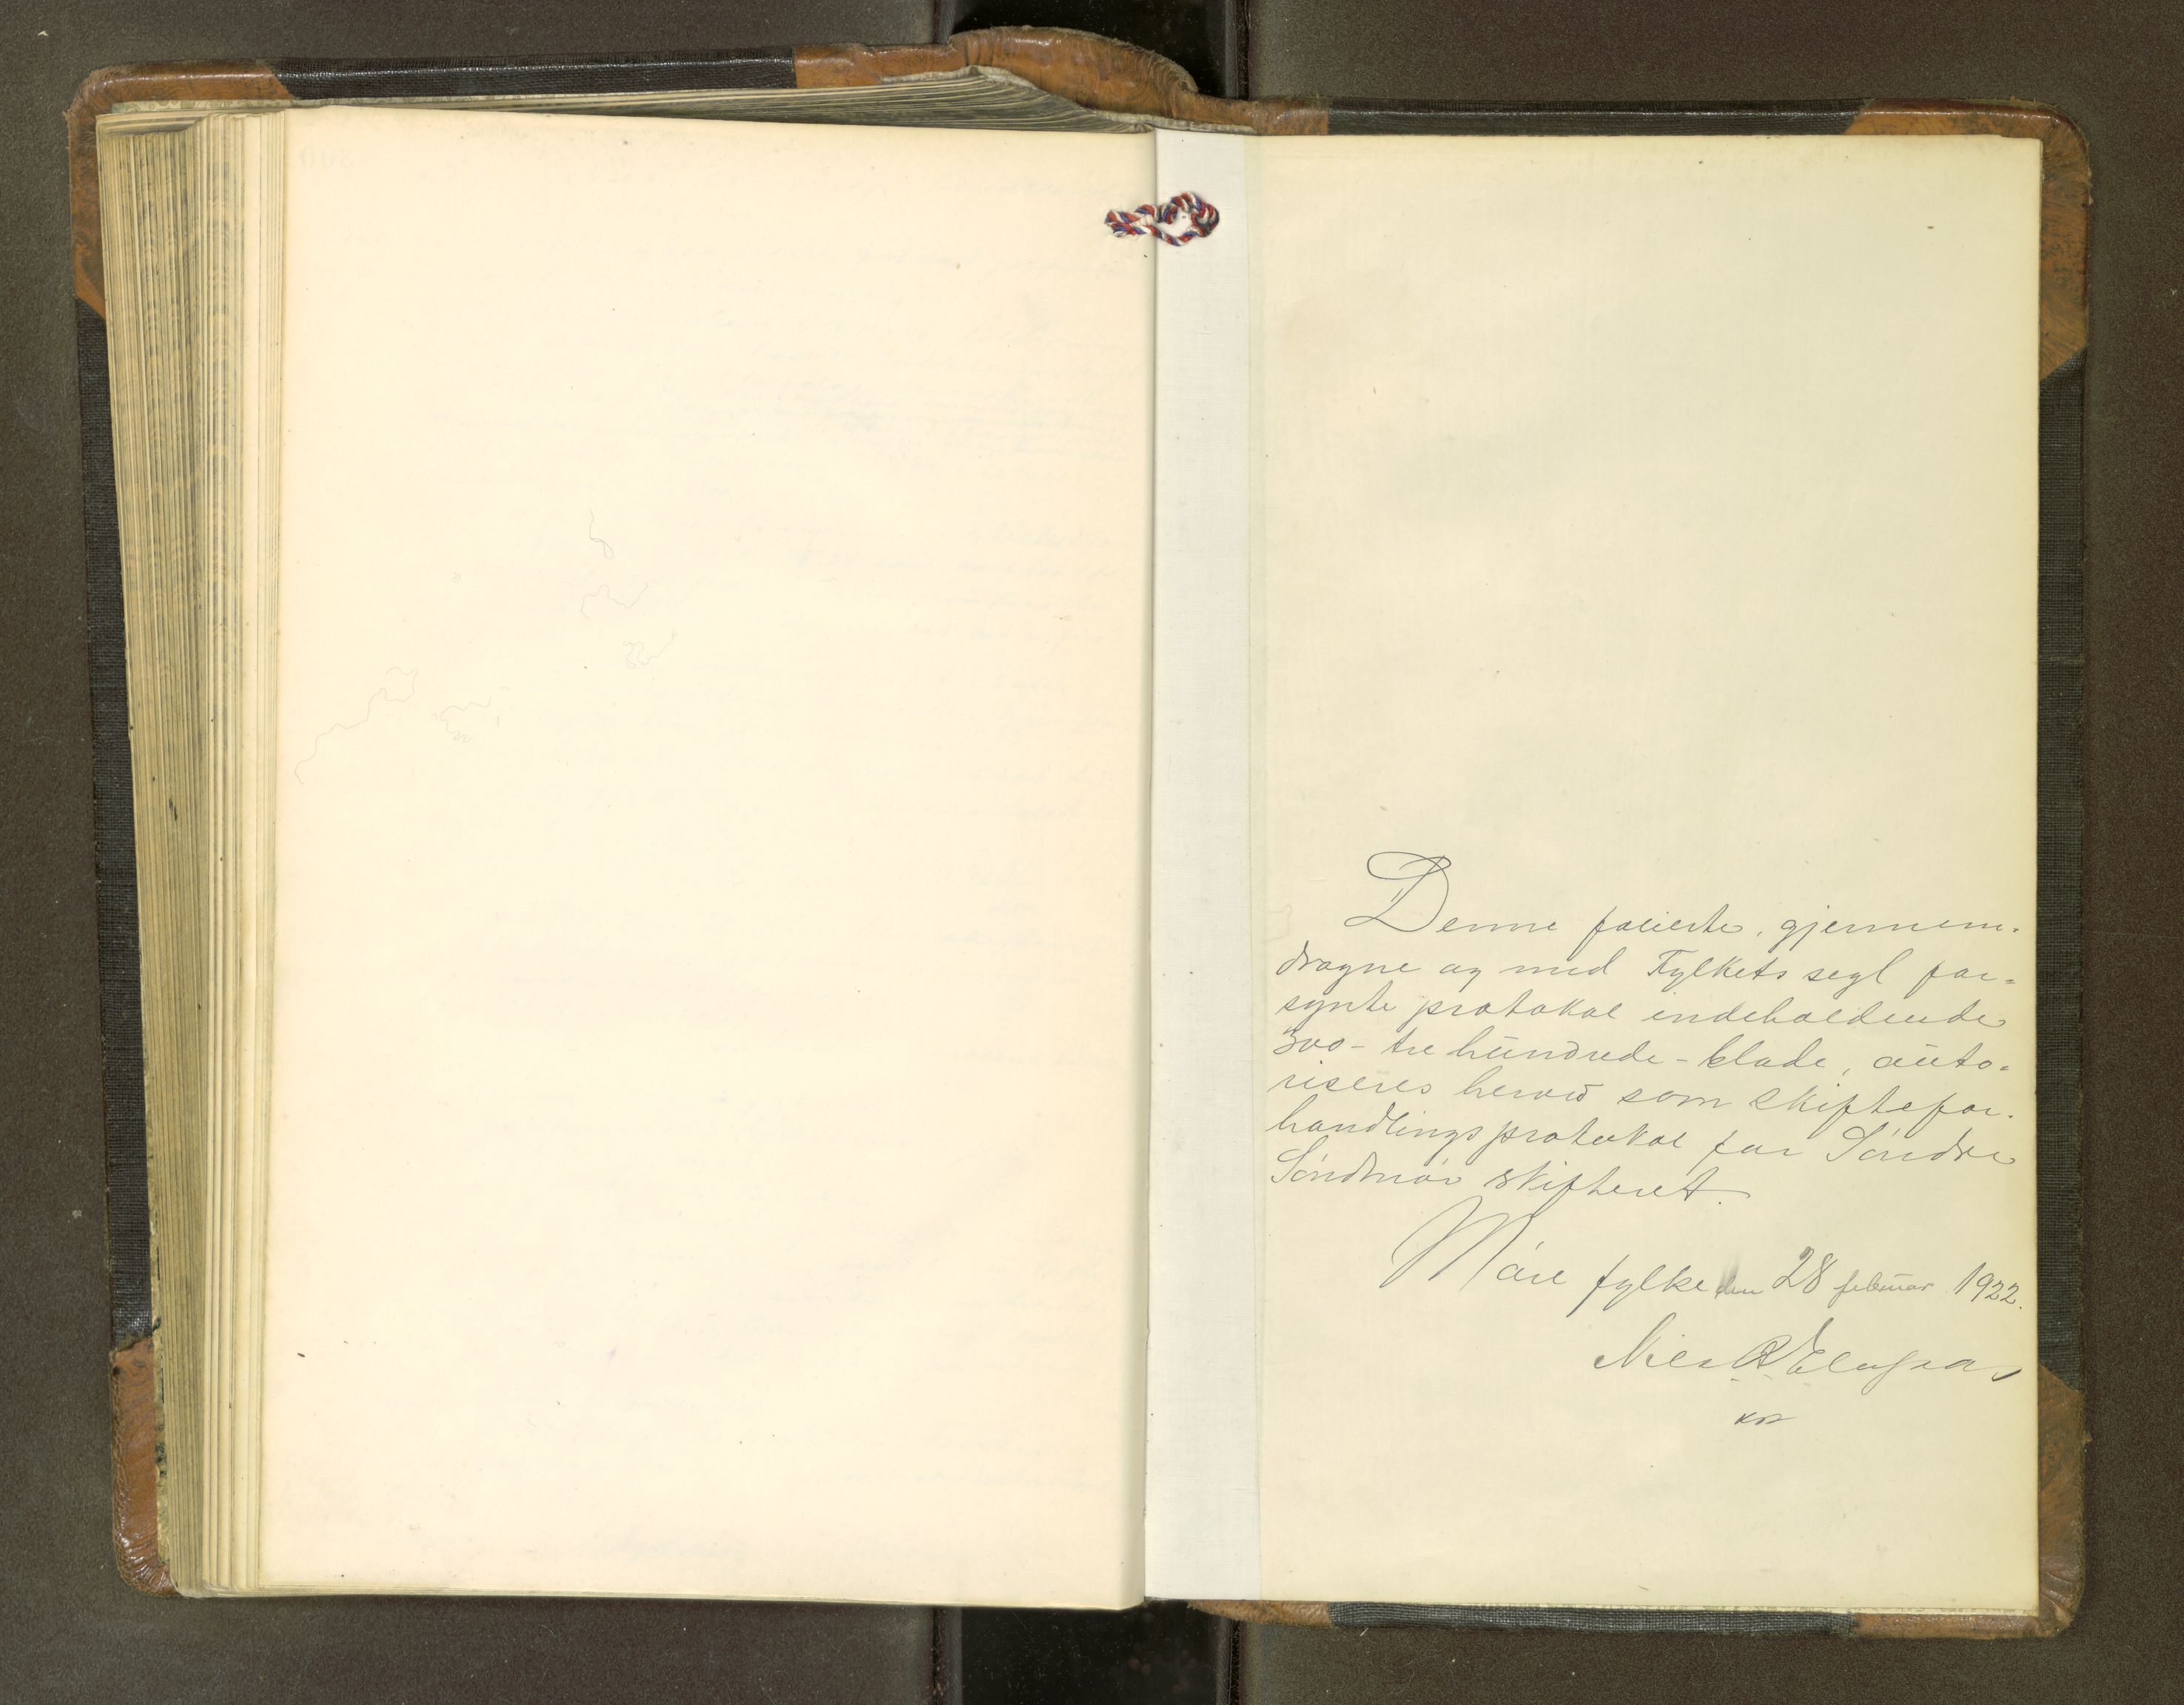 Denne folierte, gjennem-
dragne og med Fylkets segl for-
synte protokol indeholdende
300 - tre hundrede - blade, auto-
riseres herved som skiftefor-
handlingsprotokol for Söndre
Söndmör skifteret.
Möre fylke den 28 februar 1922.